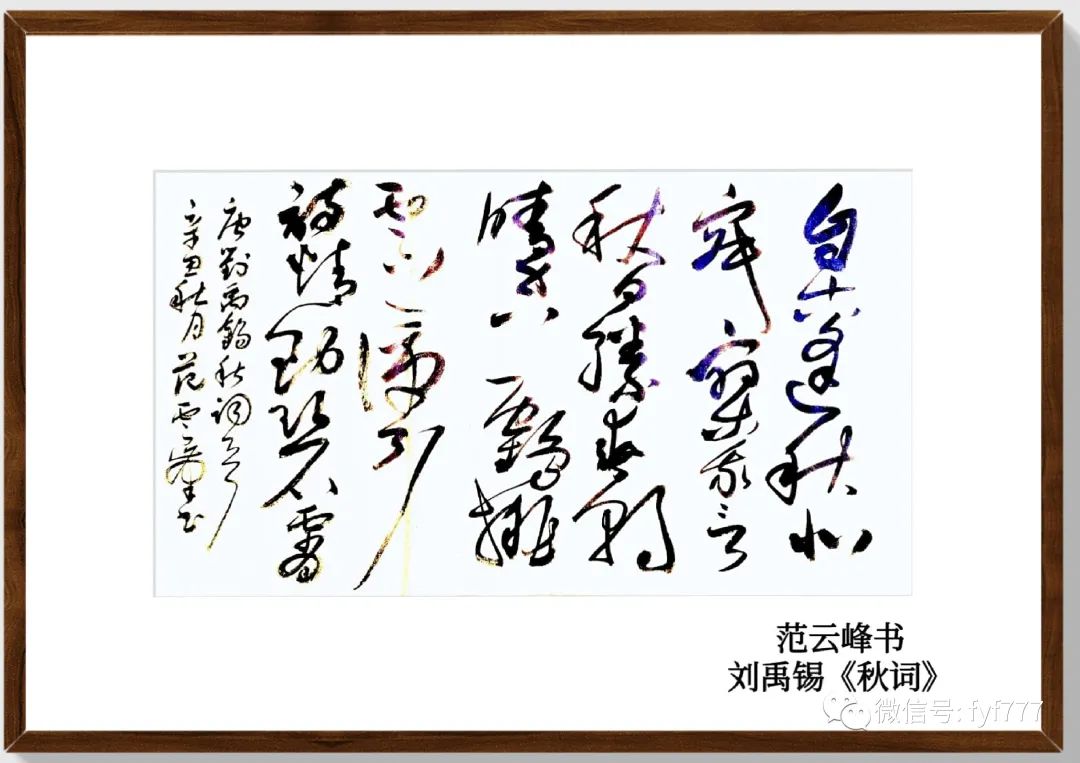 自古逢秋悲
寂寥我言
秋日勝春朝
晴空一鶴排
雲上便引
詩情到碧霄
唐劉禹錫秋詞
辛丑秋月范雲峰书
范云峰书
刘禹锡《秋词》
微信号: fyf777